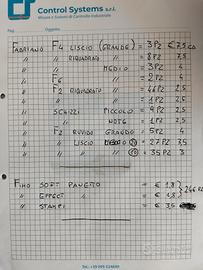 Control Systems s.r.l.
Misure e Sistemi di Controllo Industriale
Pag.
Oggetto:
FABRIANO F4 LISCIO (GRANDE) = 3 PZ € 7,5 CD
" " RIQUADRO " = 8 PZ 7,5
" " " MEDIO = 2 PZ 4
" F6 " = 2 PZ 4
" F2 RIQUADRATO " = 46 PZ 2,5
" " " " = 1 PZ 2,5
" SCHIZZI PICCOLO = 9 PZ 2,5
" " NOTE = 1 PZ 2,5
" F2 RUVIDO GRANDE = 5 PZ 4
" " LISCIO MEDIO 20 = 27 PZ 3,5
" " " " 10 = 35 PZ 3
FIMO SOFT PANETTO = € 1,8
" EFFECT " = € 1,8
" STAMPI = € 3,5
Tel.: +39 095